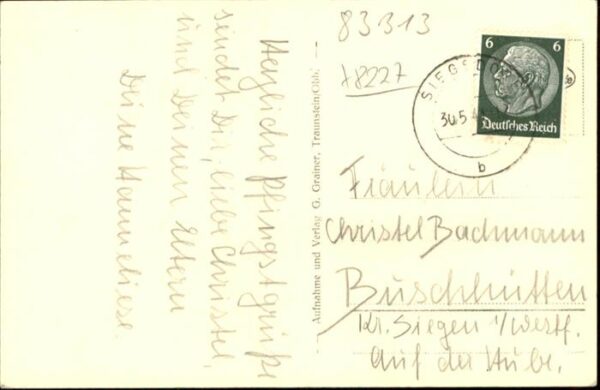 83313
78227
6 6
Deutsches Reich
SIEGSDORF
30.5.4
b
Herzliche Pfingstgrüße
sendet Dir, liebe Christel,
und Deinen Eltern
Deine Hanneliese.
Aufnahme und Verlag G. Grainer, Traunstein/Obb.
Fräulein
Christel Bachmann
Buschhütten
Kr. Siegen i/Westf.
Auf der Hube.